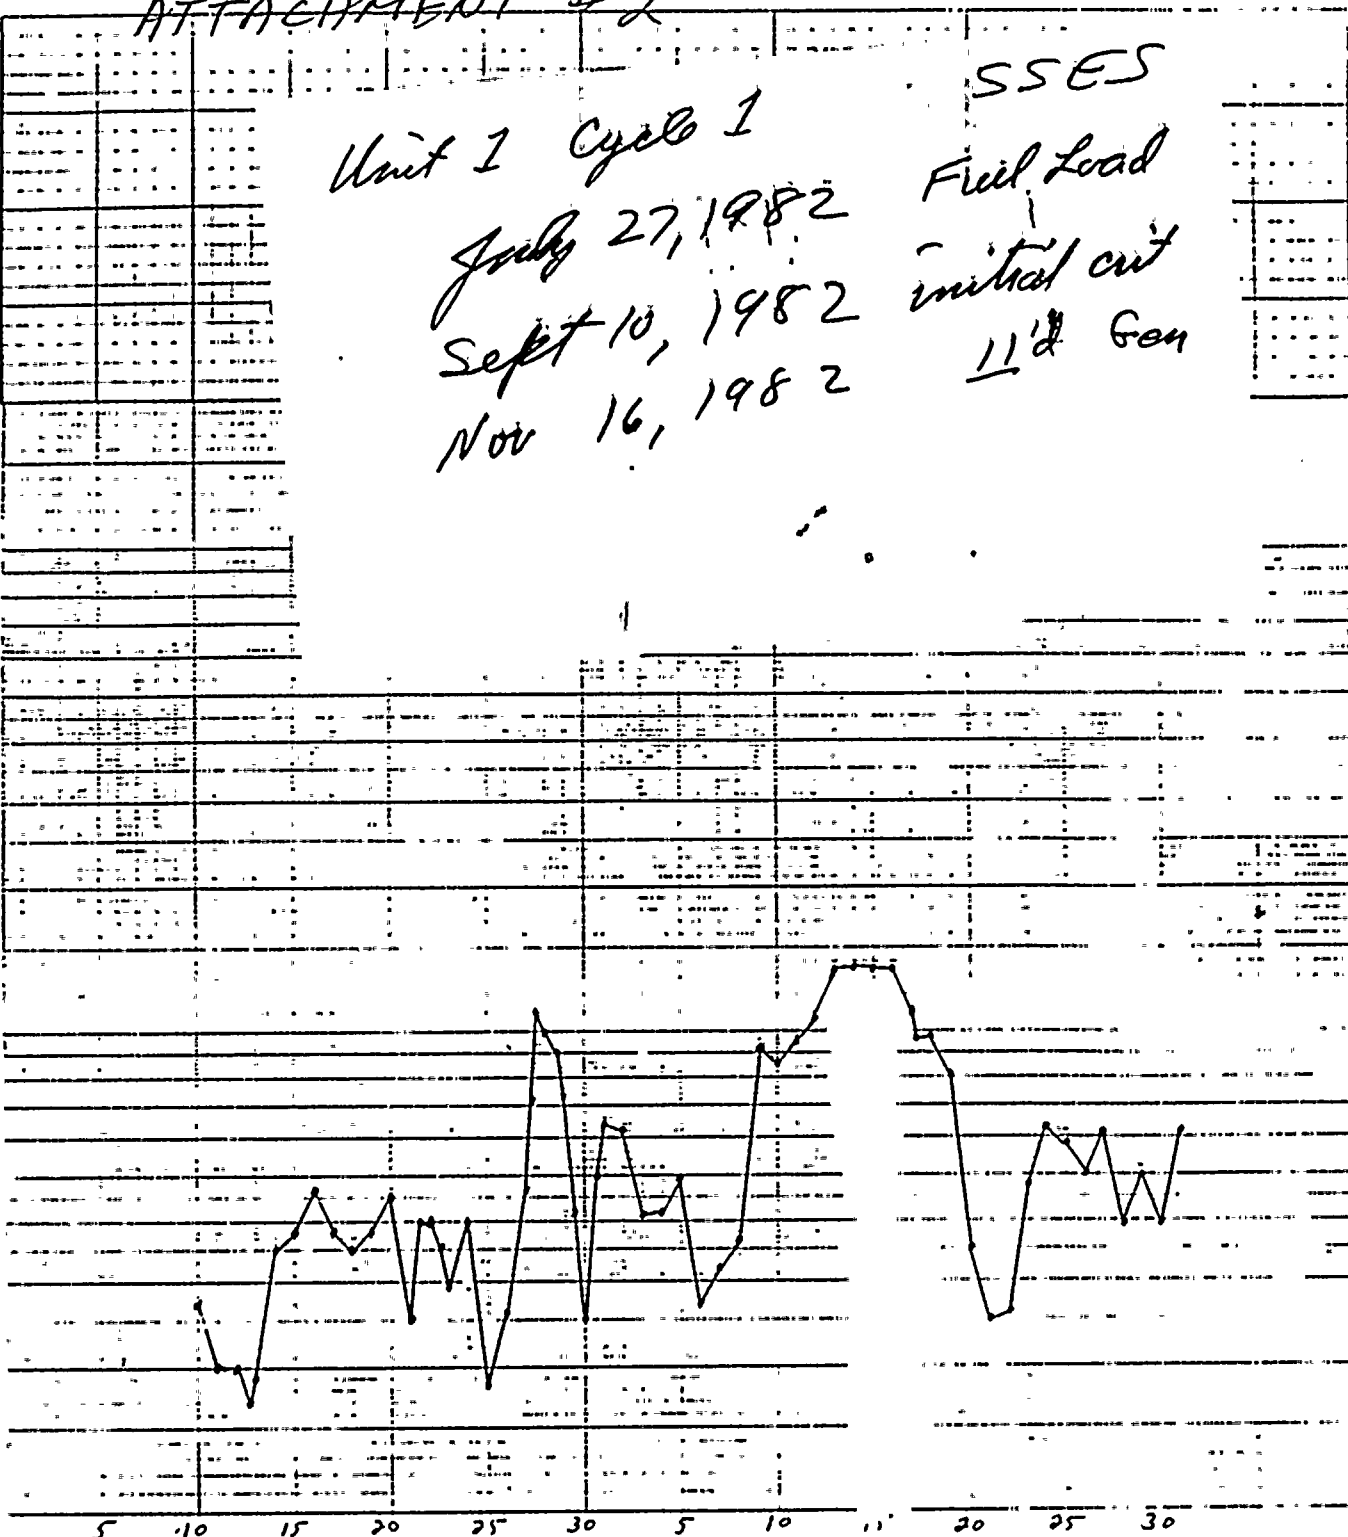 ATTACHMENT #2
SSES
Unit 1 Cycle 1
July 27, 1982 Fuel Load
Sept 10, 1982 initial crit
Nov 16, 1982 11'd Gen
5 10 15 20 25 30 5 10 15 20 25 30